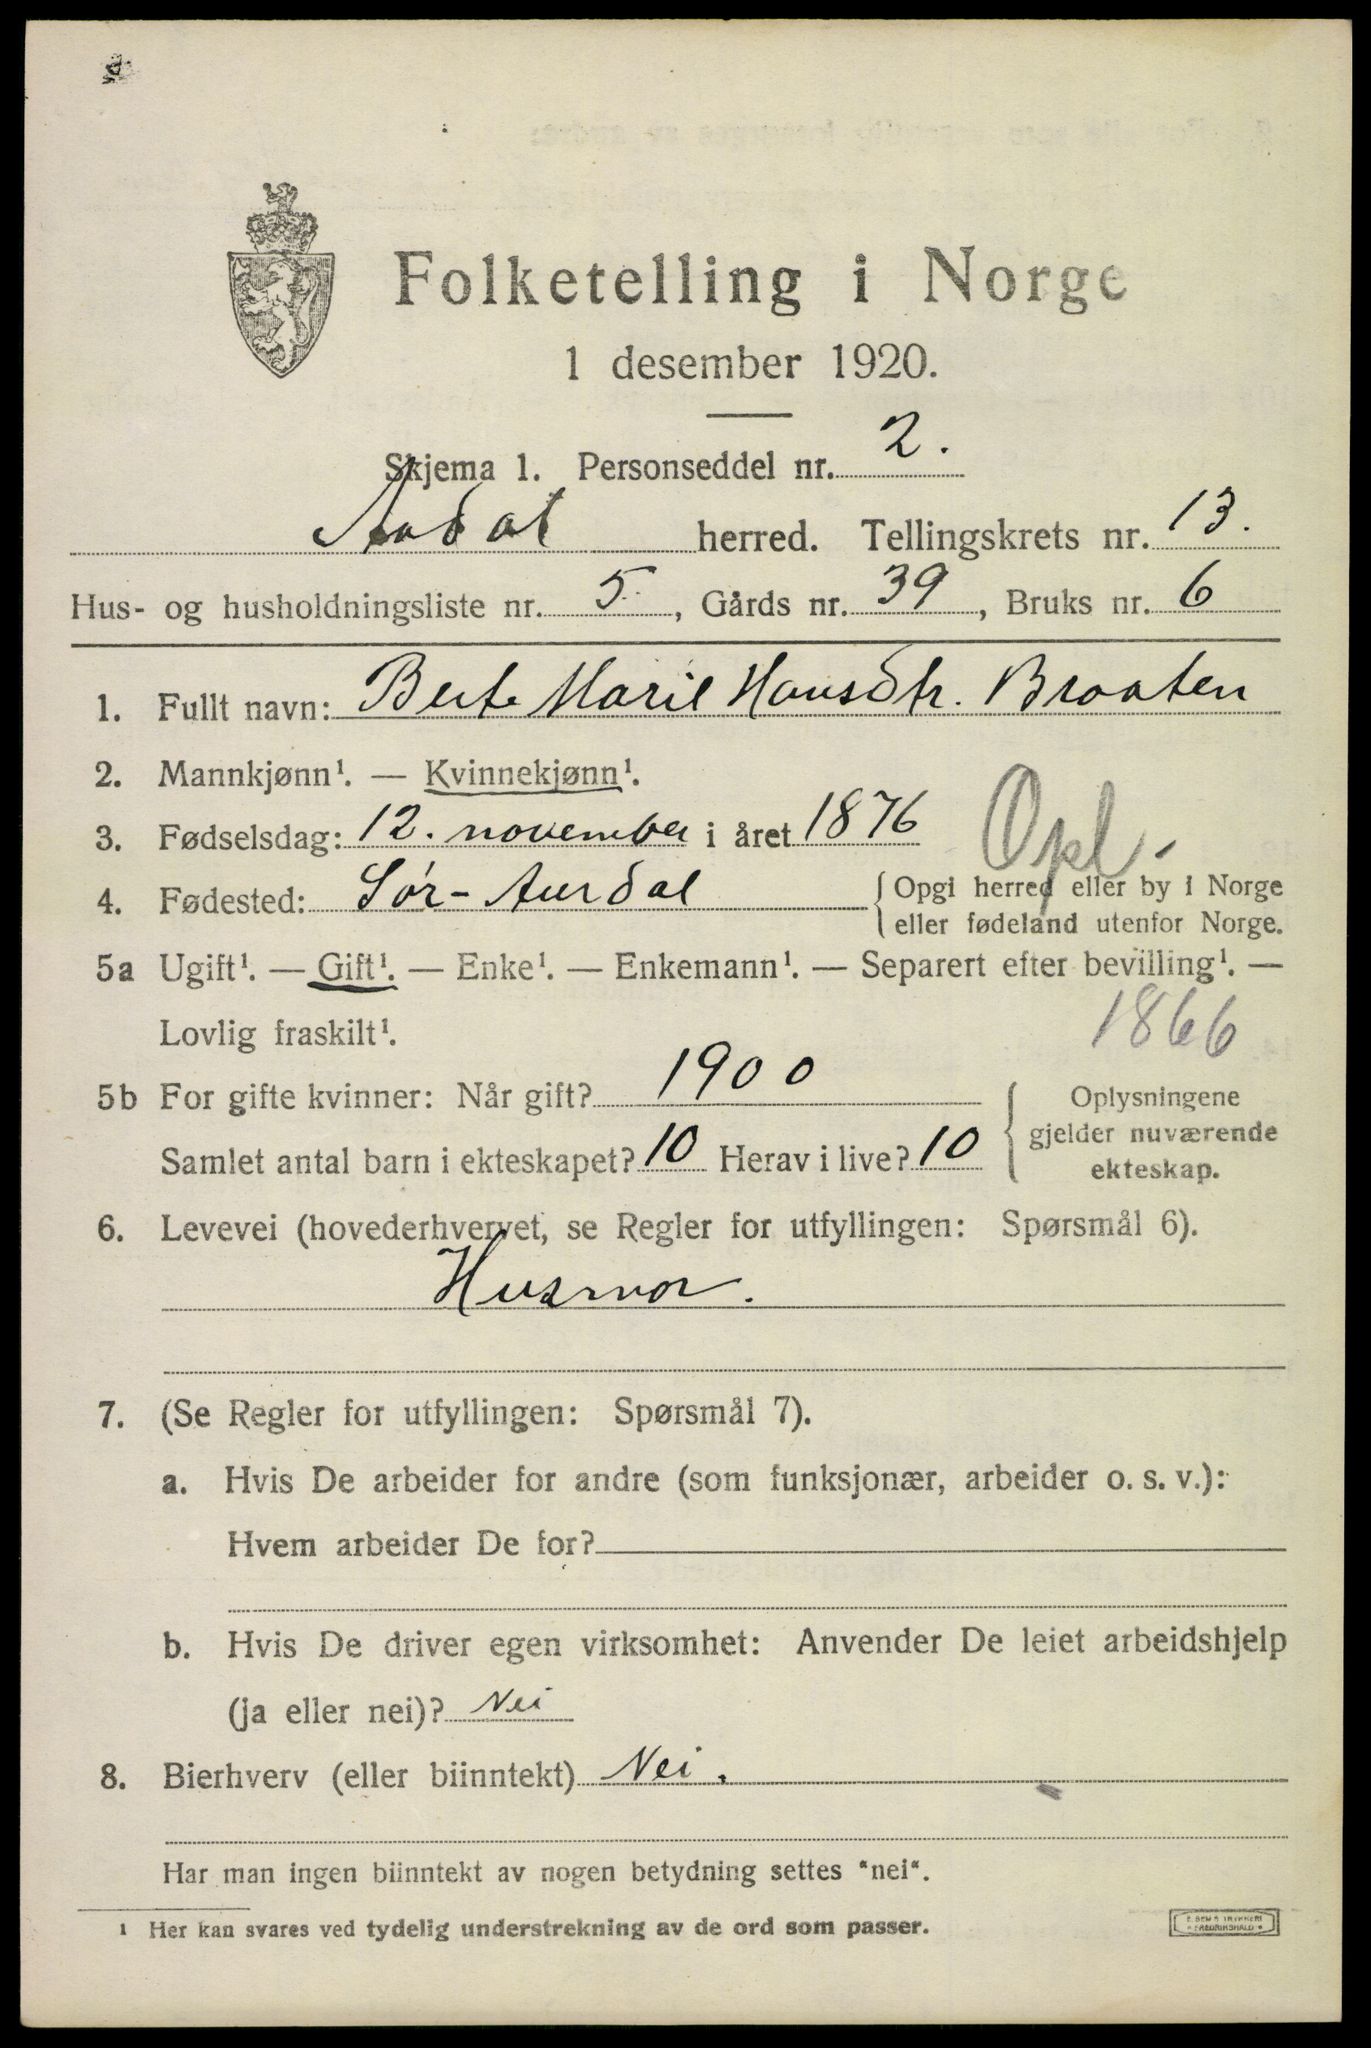 Folketelling i Norge
1 desember 1920.
Skjema 1. Personseddel nr. 2.
Aadal herred. Tellingskrets nr. 13.
Hus- og husholdningsliste nr. 5., Gårds nr. 39, Bruks nr. 6
1. Fullt navn: Berte Marie Hansdtr. Braaten
2. Mannkjønn¹. — Kvinnekjønn¹.
3. Fødselsdag: 12. november i året 1876
Opl.
4. Fødested: Sør-Aurdal { Opgi herred eller by i Norge
eller fødeland utenfor Norge.
5a Ugift¹. — Gift¹. — Enke¹. — Enkemann¹. — Separert efter bevilling¹. —
Lovlig fraskilt¹. 1866
5b For gifte kvinner: Når gift? 1900
Samlet antal barn i ekteskapet? 10 Herav i live? 10
{ Oplysningene
gjelder nuværende
ekteskap.
6. Levevei (hovederhvervet, se Regler for utfyllingen: Spørsmål 6).
Husmor.
7. (Se Regler for utfyllingen: Spørsmål 7).
a. Hvis De arbeider for andre (som funksjonær, arbeider o. s. v.):
Hvem arbeider De for?
b. Hvis De driver egen virksomhet: Anvender De leiet arbeidshjelp
(ja eller nei)? Nei
8. Bierhverv (eller biinntekt) Nei.
Har man ingen biinntekt av nogen betydning settes "nei".
¹ Her kan svares ved tydelig understrekning av de ord som passer.
E. SEM'S TRYKKERI
FREDRIKSHALD